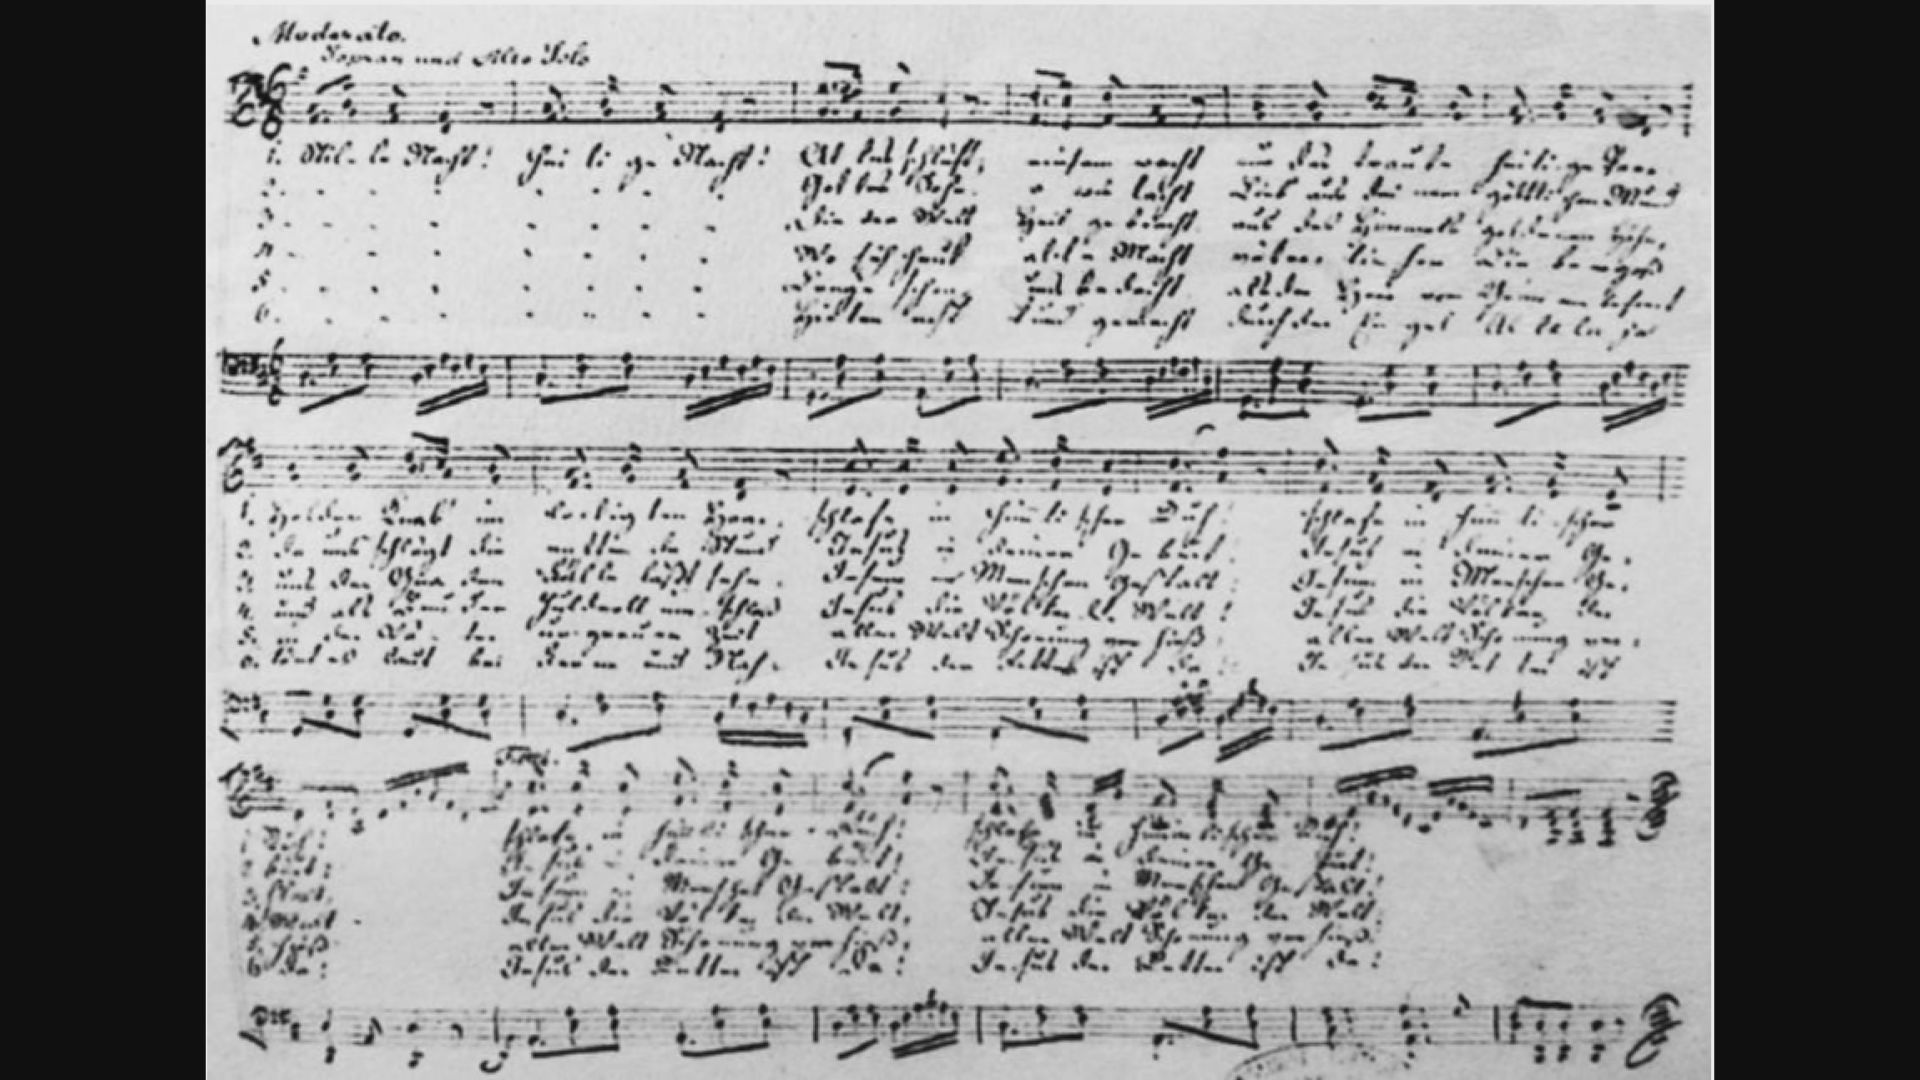 Moderato.
Sopran und Alto Solo
1. Stil- le Nacht! Hei li ge Nacht! Al les schläft; einsam wacht nur das traute heilige Paar.
2. Got tes Sohn o wie lacht Lieb aus dei nem göttli chen Mund
3. Die der Welt Heil ge bracht aus des Himmels goldenen Höhn,
4. Wo sich heut alle Macht
5. Lange schon uns bedacht als der Herr vom
6. Hirten erst kund gemacht durch der En gel Al le lu ja
1. Holder Knab im lockigten Haar, schlafe in himmli scher Ruh! schlafe in himm li scher
2. da uns schlägt die rettende Stund Jesus in deiner Ge burt! Jesus in deiner Ge-
3. uns der Gna den Fülle läßt sehn, Jesum in Menschen Gestalt! Jesum in Menschen Ge-
4. und als Bru der huldvoll um schloß Jesus die Völker der Welt! Jesus die Völker der
5. in der Vä- ter urgrauen Zeit aller Welt Schonung ver hieß aller Welt Schonung ver-
6. tönt es laut bei Ferne und Nah- Jesus der Retter ist da! Jesus der Ret ter ist
1. Ruh! schlafe in himmli scher Ruh! schlafe in himmlischer Ruh!
2. burt! Jesus in deiner Ge burt! Jesus in deiner Ge burt!
3. stalt, Jesum in Menschen Gestalt! Jesum in Menschen Gestalt!
4. Welt Jesus die Völ ker der Welt, Jesus die Völker der Welt
5. hieß aller Welt Schonung verhieß, aller Welt Schonung ver hieß
6. da! Jesus der Retter ist da! Jesus der Retter ist da!